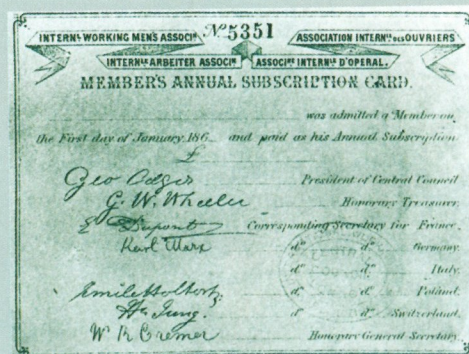 Nº 5351
INTERNL WORKING MEN'S ASSOCIN ASSOCIATION INTERNLE DES OUVRIERS
INTERNLE ARBEITER ASSOCIN ASSOCINE INTERNLE D'OPERAI.
MEMBER'S ANNUAL SUBSCRIPTION CARD.
was admitted a Member on
the First day of January 186_ and paid as his Annual Subscription
£
Geo Odger President of Central Council
G. W. Wheeler Honorary Treasurer.
E Dupont Corresponding Secretary for France.
Karl Marx do do Germany.
do do Italy.
Emile Holtorp do do Poland.
H. Jung. do do Switzerland.
W R Cremer Honorary General Secretary.